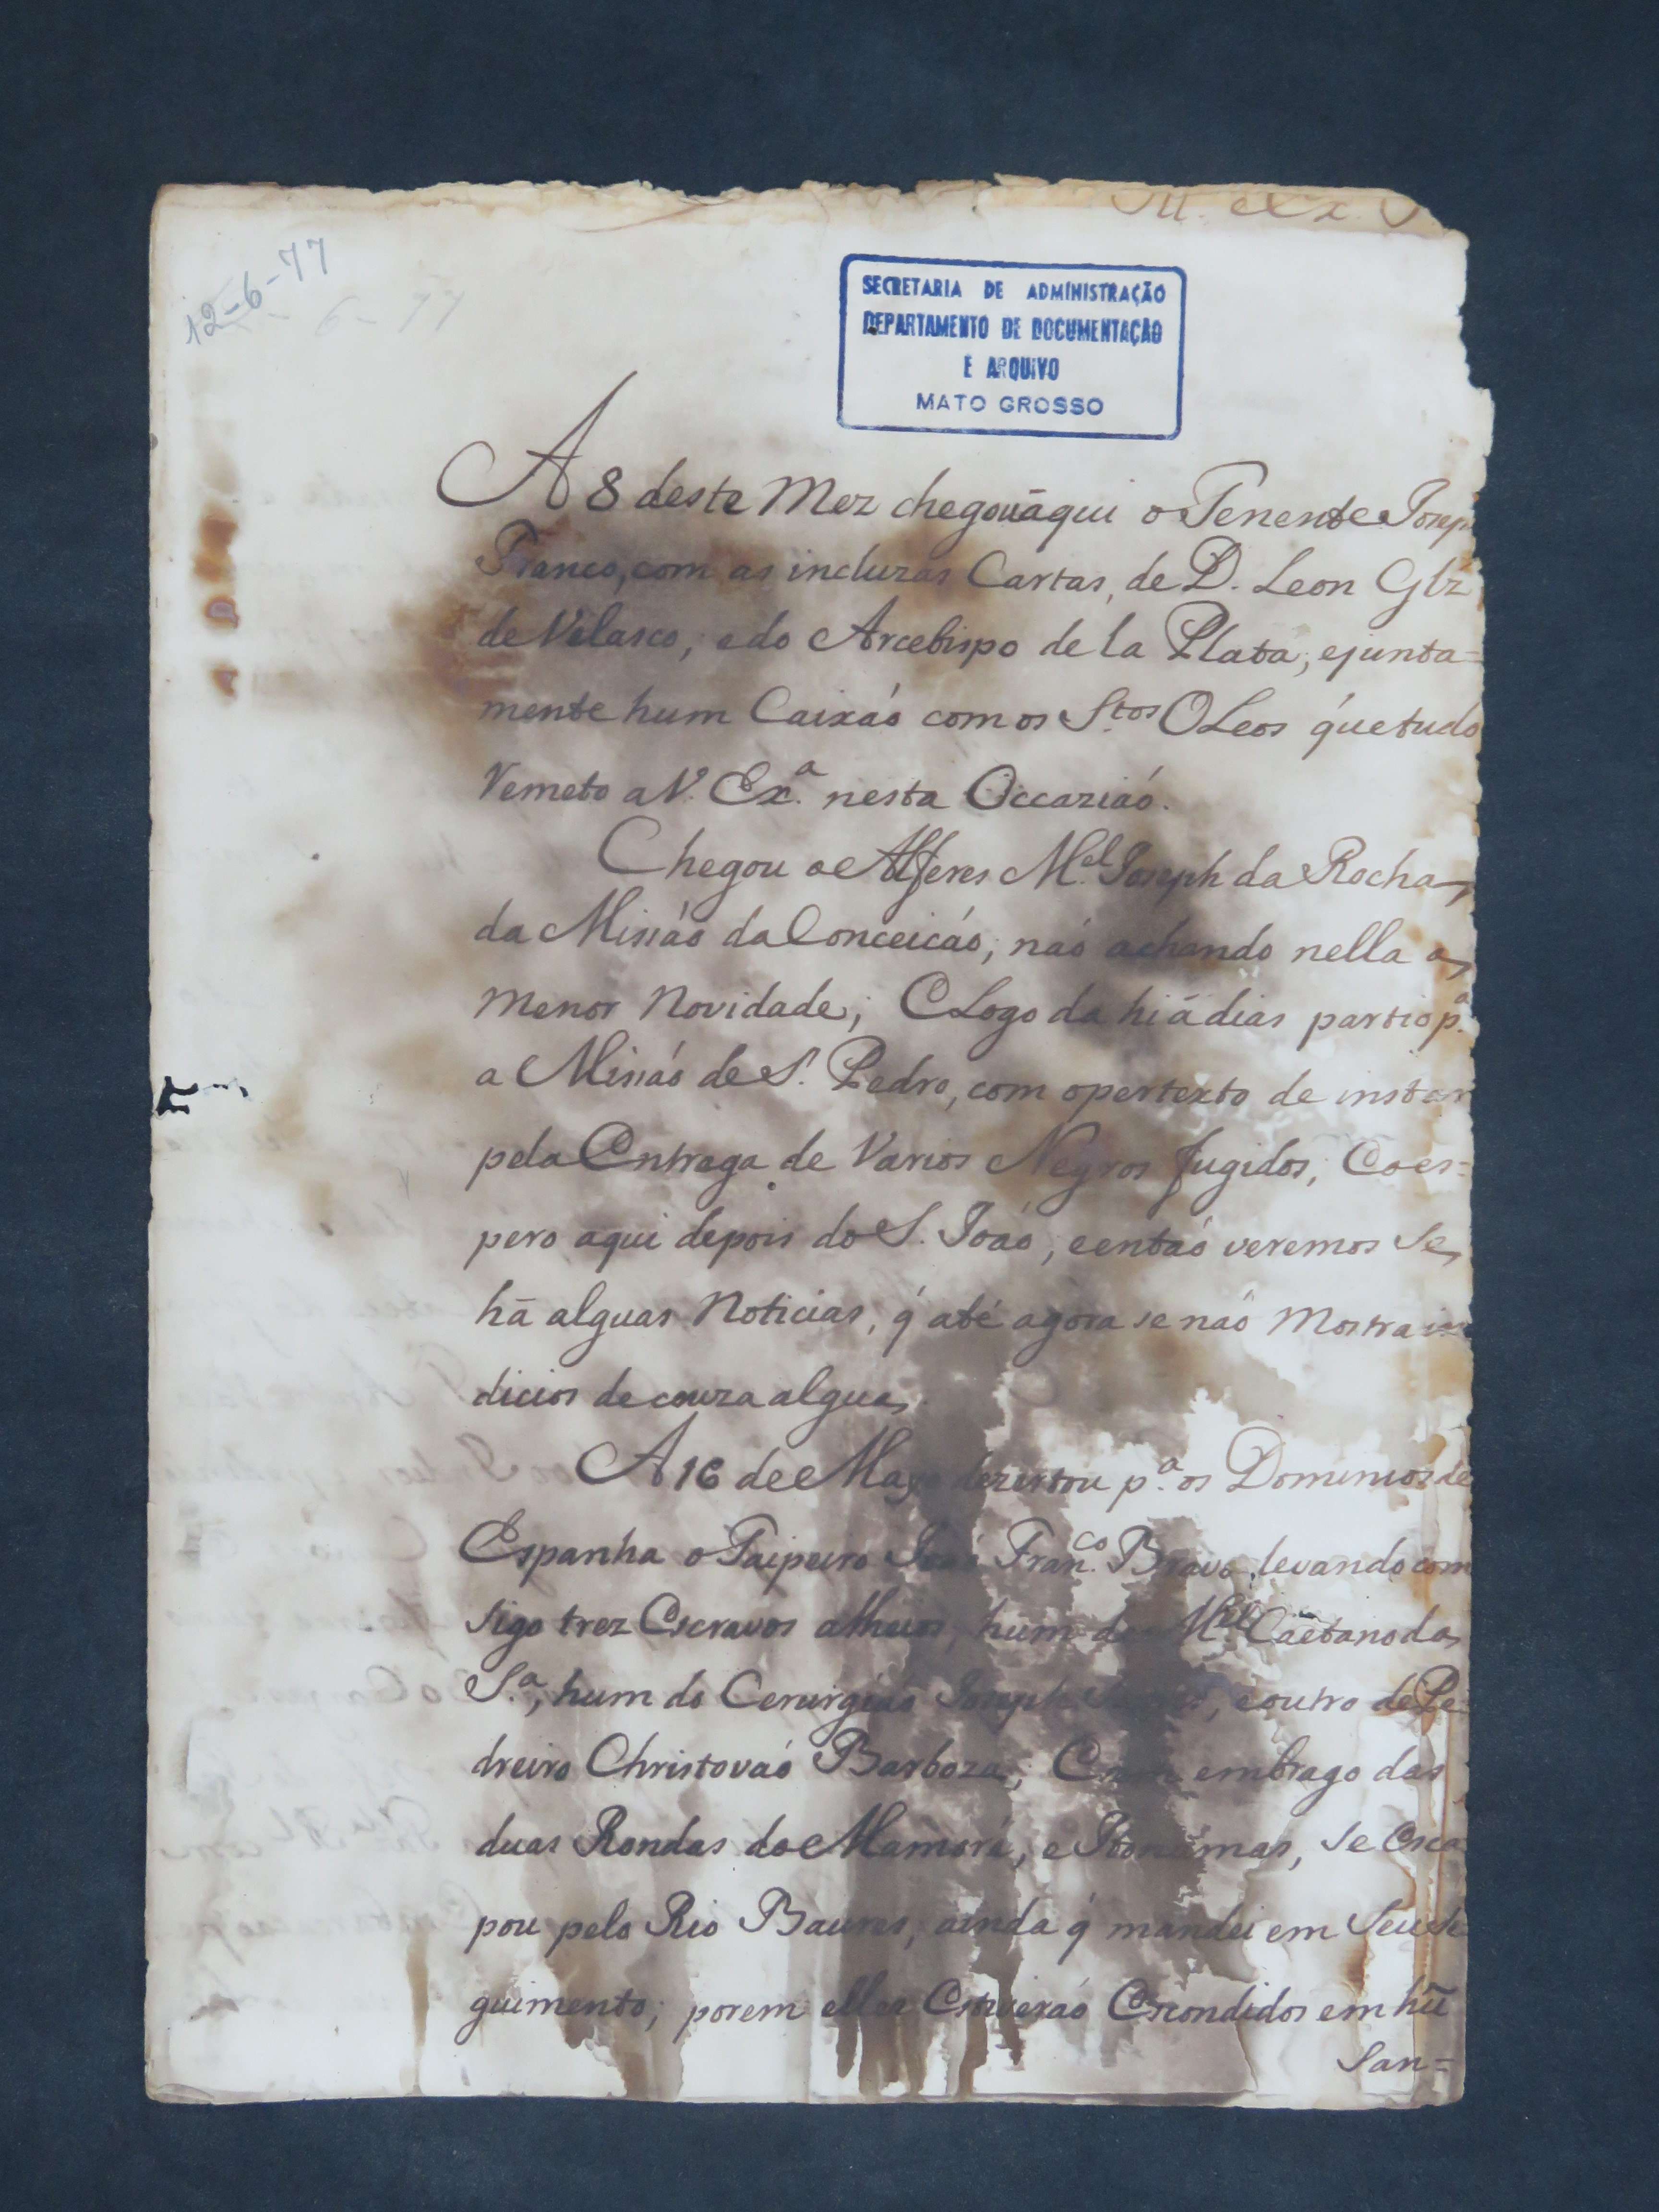 12-6-77
6-77
SECRETARIA DE ADMINISTRAÇÃO
DEPARTAMENTO DE DOCUMENTAÇÃO
E ARQUIVO
MATO GROSSO
A 8 deste Mez chegou aqui o Tenente Joseph
Franco, com as incluzas Cartas, de D. Leon Glz
de Velasco, e do Arcebispo de la Plata, ejunta=
mente hum Caixaó com os S.tos OLeos q̃ue tudo
Remeto a V. Ex.ª nesta Occaziaó.
Chegou o Alferes M.el Joseph da Rocha
da Missaó da Conceicaó, naó achando nella a
menor Novidade; E Logo da hi ā dias partio p.ª
a Missaó de S. Pedro, com o pertexto de instar
pela Entrega de Varios Negros fugidos, E o es=
pero aqui depois do S. Joaó, e entaó veremos Se
hā alguas Noticias, q̃ até agora se naó Mostra in
dicios de couza algua.
A 16 de Mayo dezertou p.ª os Dominios de
Espanha o Taipeiro Joaó Fran.co Bravo, levando com
sigo trez Escravos alheios, hum de M.el Caetano da
S.ª, hum do Cerurgiaó Joseph, e outro de Pe
dreiro Christovaó Barboza, E sem embrago das
duas Rondas do Mamoré, e Itonamas, Se Esca
pou pelo Rio Baures, ainda q̃ mandei em Seu Se
guimento; porem elles Estiveraó Escondidos em hũ
San=